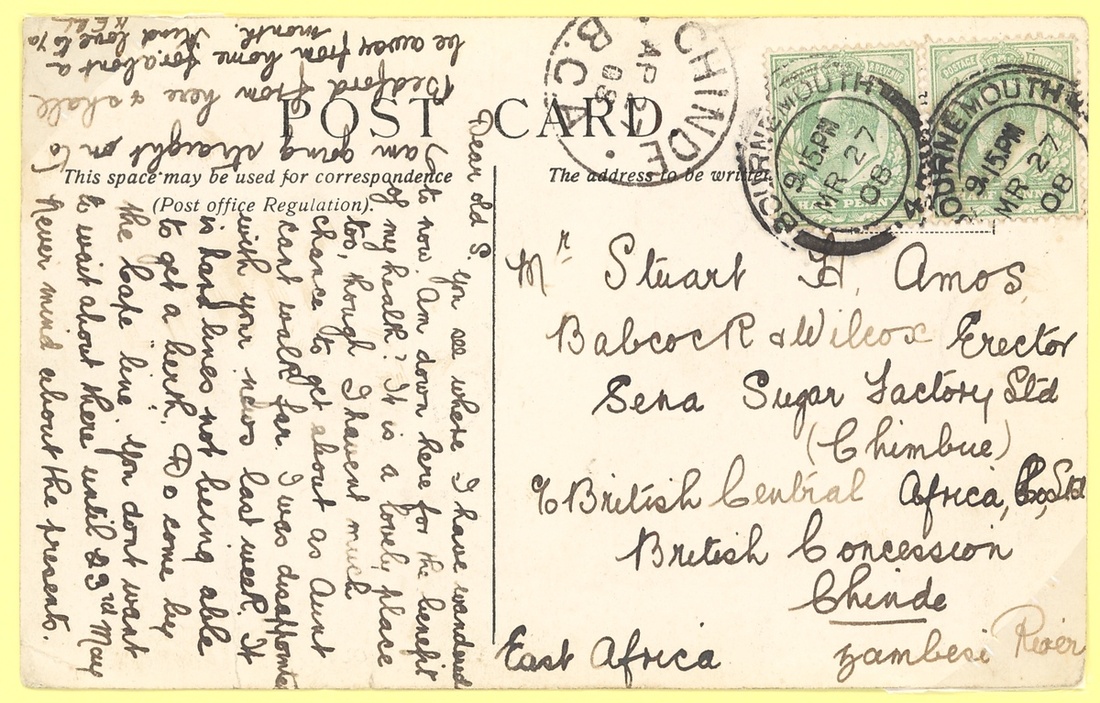 POST CARD
This space may be used for correspondence
(Post office Regulation).
The address to be written
CHINDE
B.C.A.
AP
08
BOURNEMOUTH
9.15.PM
MR 27
08
BOURNEMOUTH
9.15.PM
MR 27
08
POSTAGE REVENUE
HALF PENNY
POSTAGE REVENUE
HALF PENNY
Mr Stuart H. Amos
Babcock & Wilcox Erector
Sena Sugar Factory Ltd
(Chimbue)
c/o British Central Africa, Co, Ltd
British Concession
Chinde
East Africa Zambesi River
Dear old S. you see where I have wandered
to now. Am down here for the benefit
of my health! It is a lovely place
too, though I havent much
chance to get about as Aunt
cant walk far. I was disappointed
with your news last week. It
is hard lines not being able
to get a berth. Do come by
the Cape line, you dont want
to wait about there until 23rd May
Never mind about the present.
I am going straight on to
Bedford from here & shall
be away from home for about a
month. Kind love to